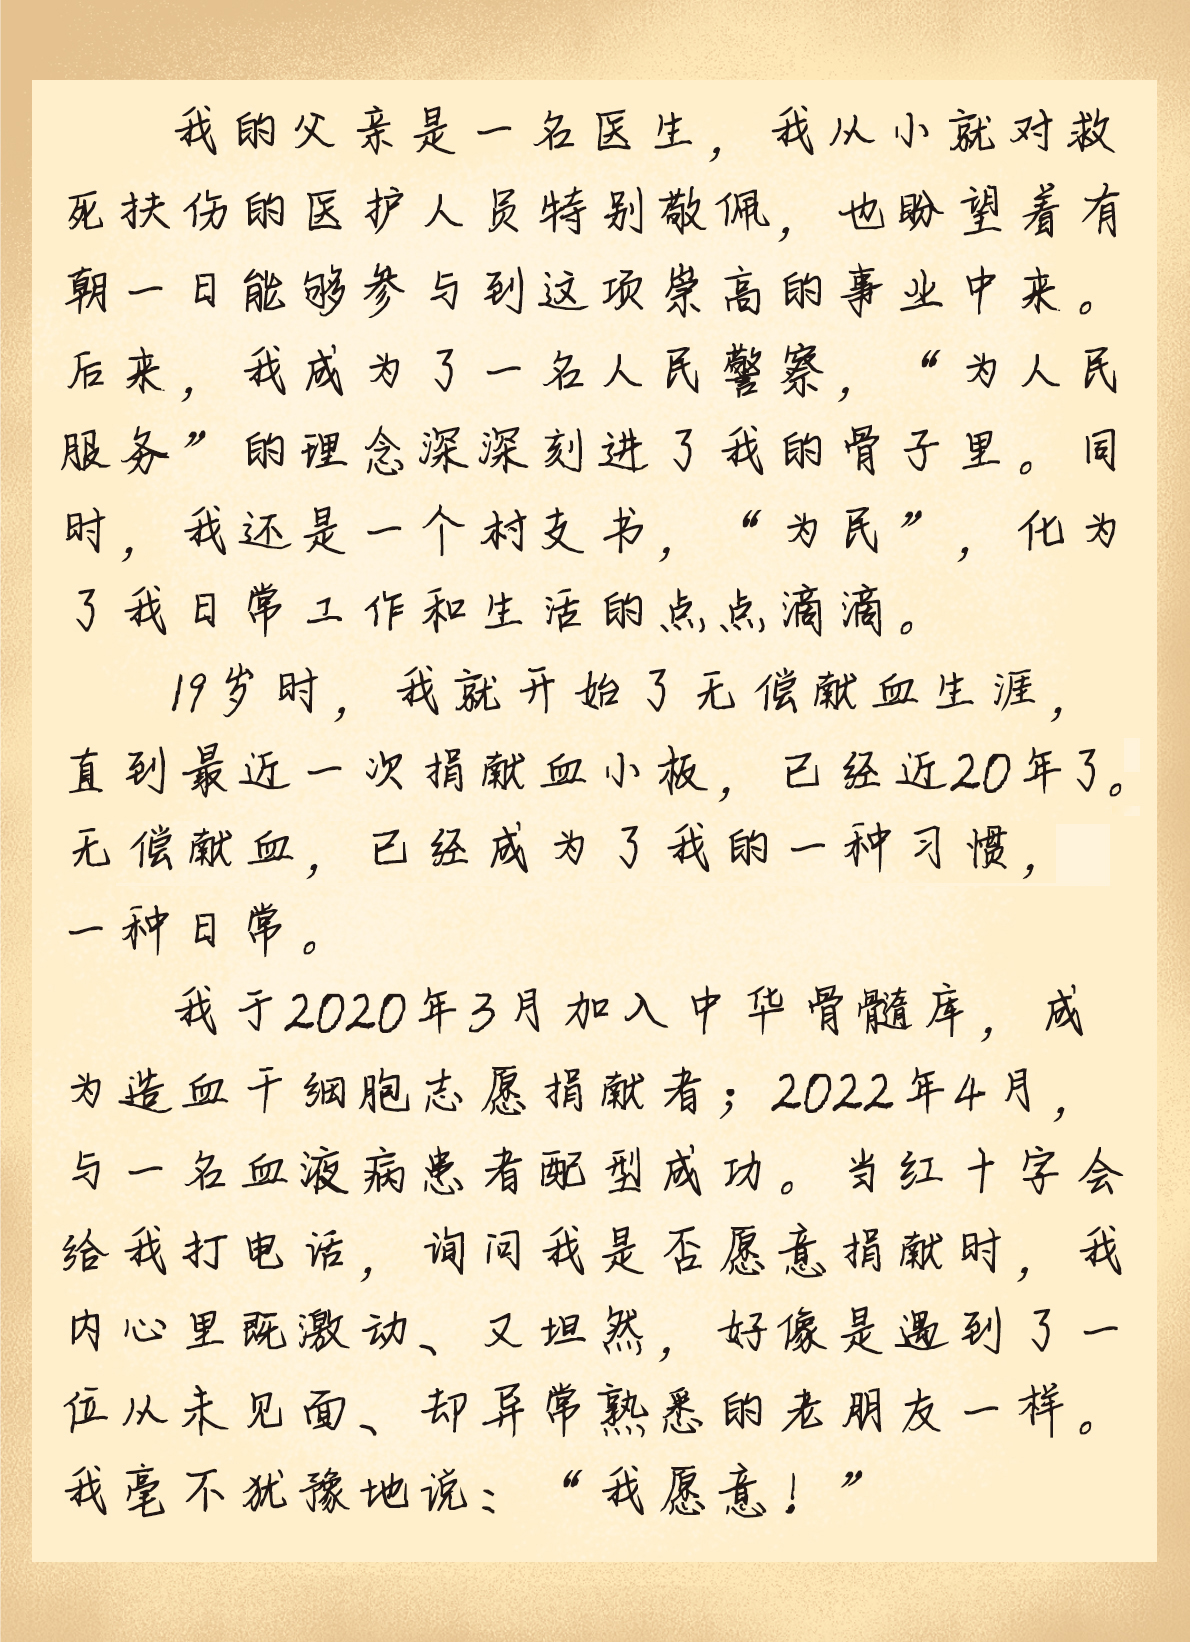 我的父亲是一名医生，我从小就对救
死扶伤的医护人员特别敬佩，也盼望着有
朝一日能够参与到这项崇高的事业中来。
后来，我成为了一名人民警察，“为人民
服务”的理念深深刻进了我的骨子里。同
时，我还是一个村支书，“为民”，化为
了我日常工作和生活的点点滴滴。
19岁时，我就开始了无偿献血生涯，
直到最近一次捐献血小板，已经近20年了。
无偿献血，已经成为了我的一种习惯，
一种日常。
我于2020年3月加入中华骨髓库，成
为造血干细胞志愿捐献者；2022年4月，
与一名血液病患者配型成功。当红十字会
给我打电话，询问我是否愿意捐献时，我
内心里既激动、又坦然，好像是遇到了一
位从未见面、却异常熟悉的老朋友一样。
我毫不犹豫地说：“我愿意！”